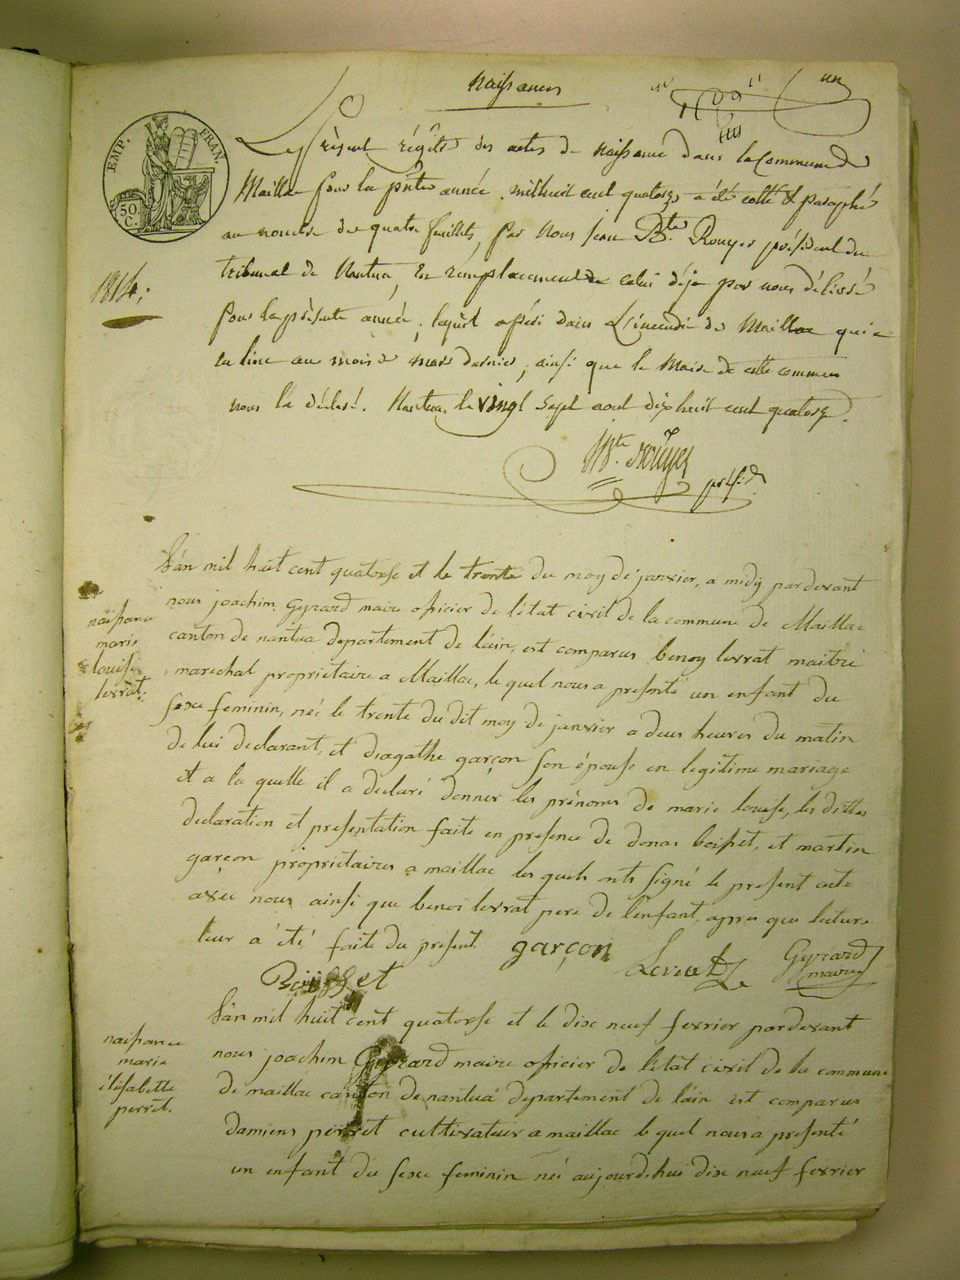 Naissances
un
EMP. FRAN.
50 C.
Le présent régître des actes de Naissance dans la Commune de
Maillac pour la pñte année, mil huit cent quatorze a été cotté & paraphé
au nombre de quatre feuillets, par Nous Jean Bte. Rouyer président du
tribunal de Nantua, En remplacement de celui déja par nous délivré
1814;
pour la présente année, lequel a péri dans L'incendie de Maillac qui a
eu lieu au mois de mars dernier, ainsi que le Maire de cette commune
nous l'a déclaré. Nantua, le vingt sept aout dix huit cent quatorze.
Bte. Rouyer présid.
L'an mil huit cent quatorse et le trente du moy de janvier, a midy pardevant
nous joachim Gyrard maire oficier de l'etat civil de la commune de Maillac
naissance
marie
louise
levrat.
canton de nantua departement de lain, est comparus benoy levrat maitre
marechal proprietaire a Maillac, le quel nous a presenté un enfant du
sexe feminin, néé le trente du dit moy de janvier a deus heures du matin
de lui declarant, et d'agathe garçon son épouse en legitime mariage
et a la quelle il a declaré donner les prénoms de marie louise, les dittes
declaration et presentation faite en presence de donas boisset, et martin
garçon proprietaires a maillac les quels onts signé le present acte
avec nous ainsi que benoi levrat pere de l'enfant, apres que lecture
leur a été faite du present. garçon Levrat Gyrard
maire
Boisset
naissance
marie
élisabette
perret.
L'an mil huit cent quatorse et le dixe neuf fevrier pardevant
nous joachim Gyrard maire oficier de l'etat civil de la commune
de maillac canton de nantua departement de lain est comparus
damiens perret cultivateur a maillac le quel nous a presenté
un enfant du sexe feminin néé aujourdhui dixe neuf fevrier